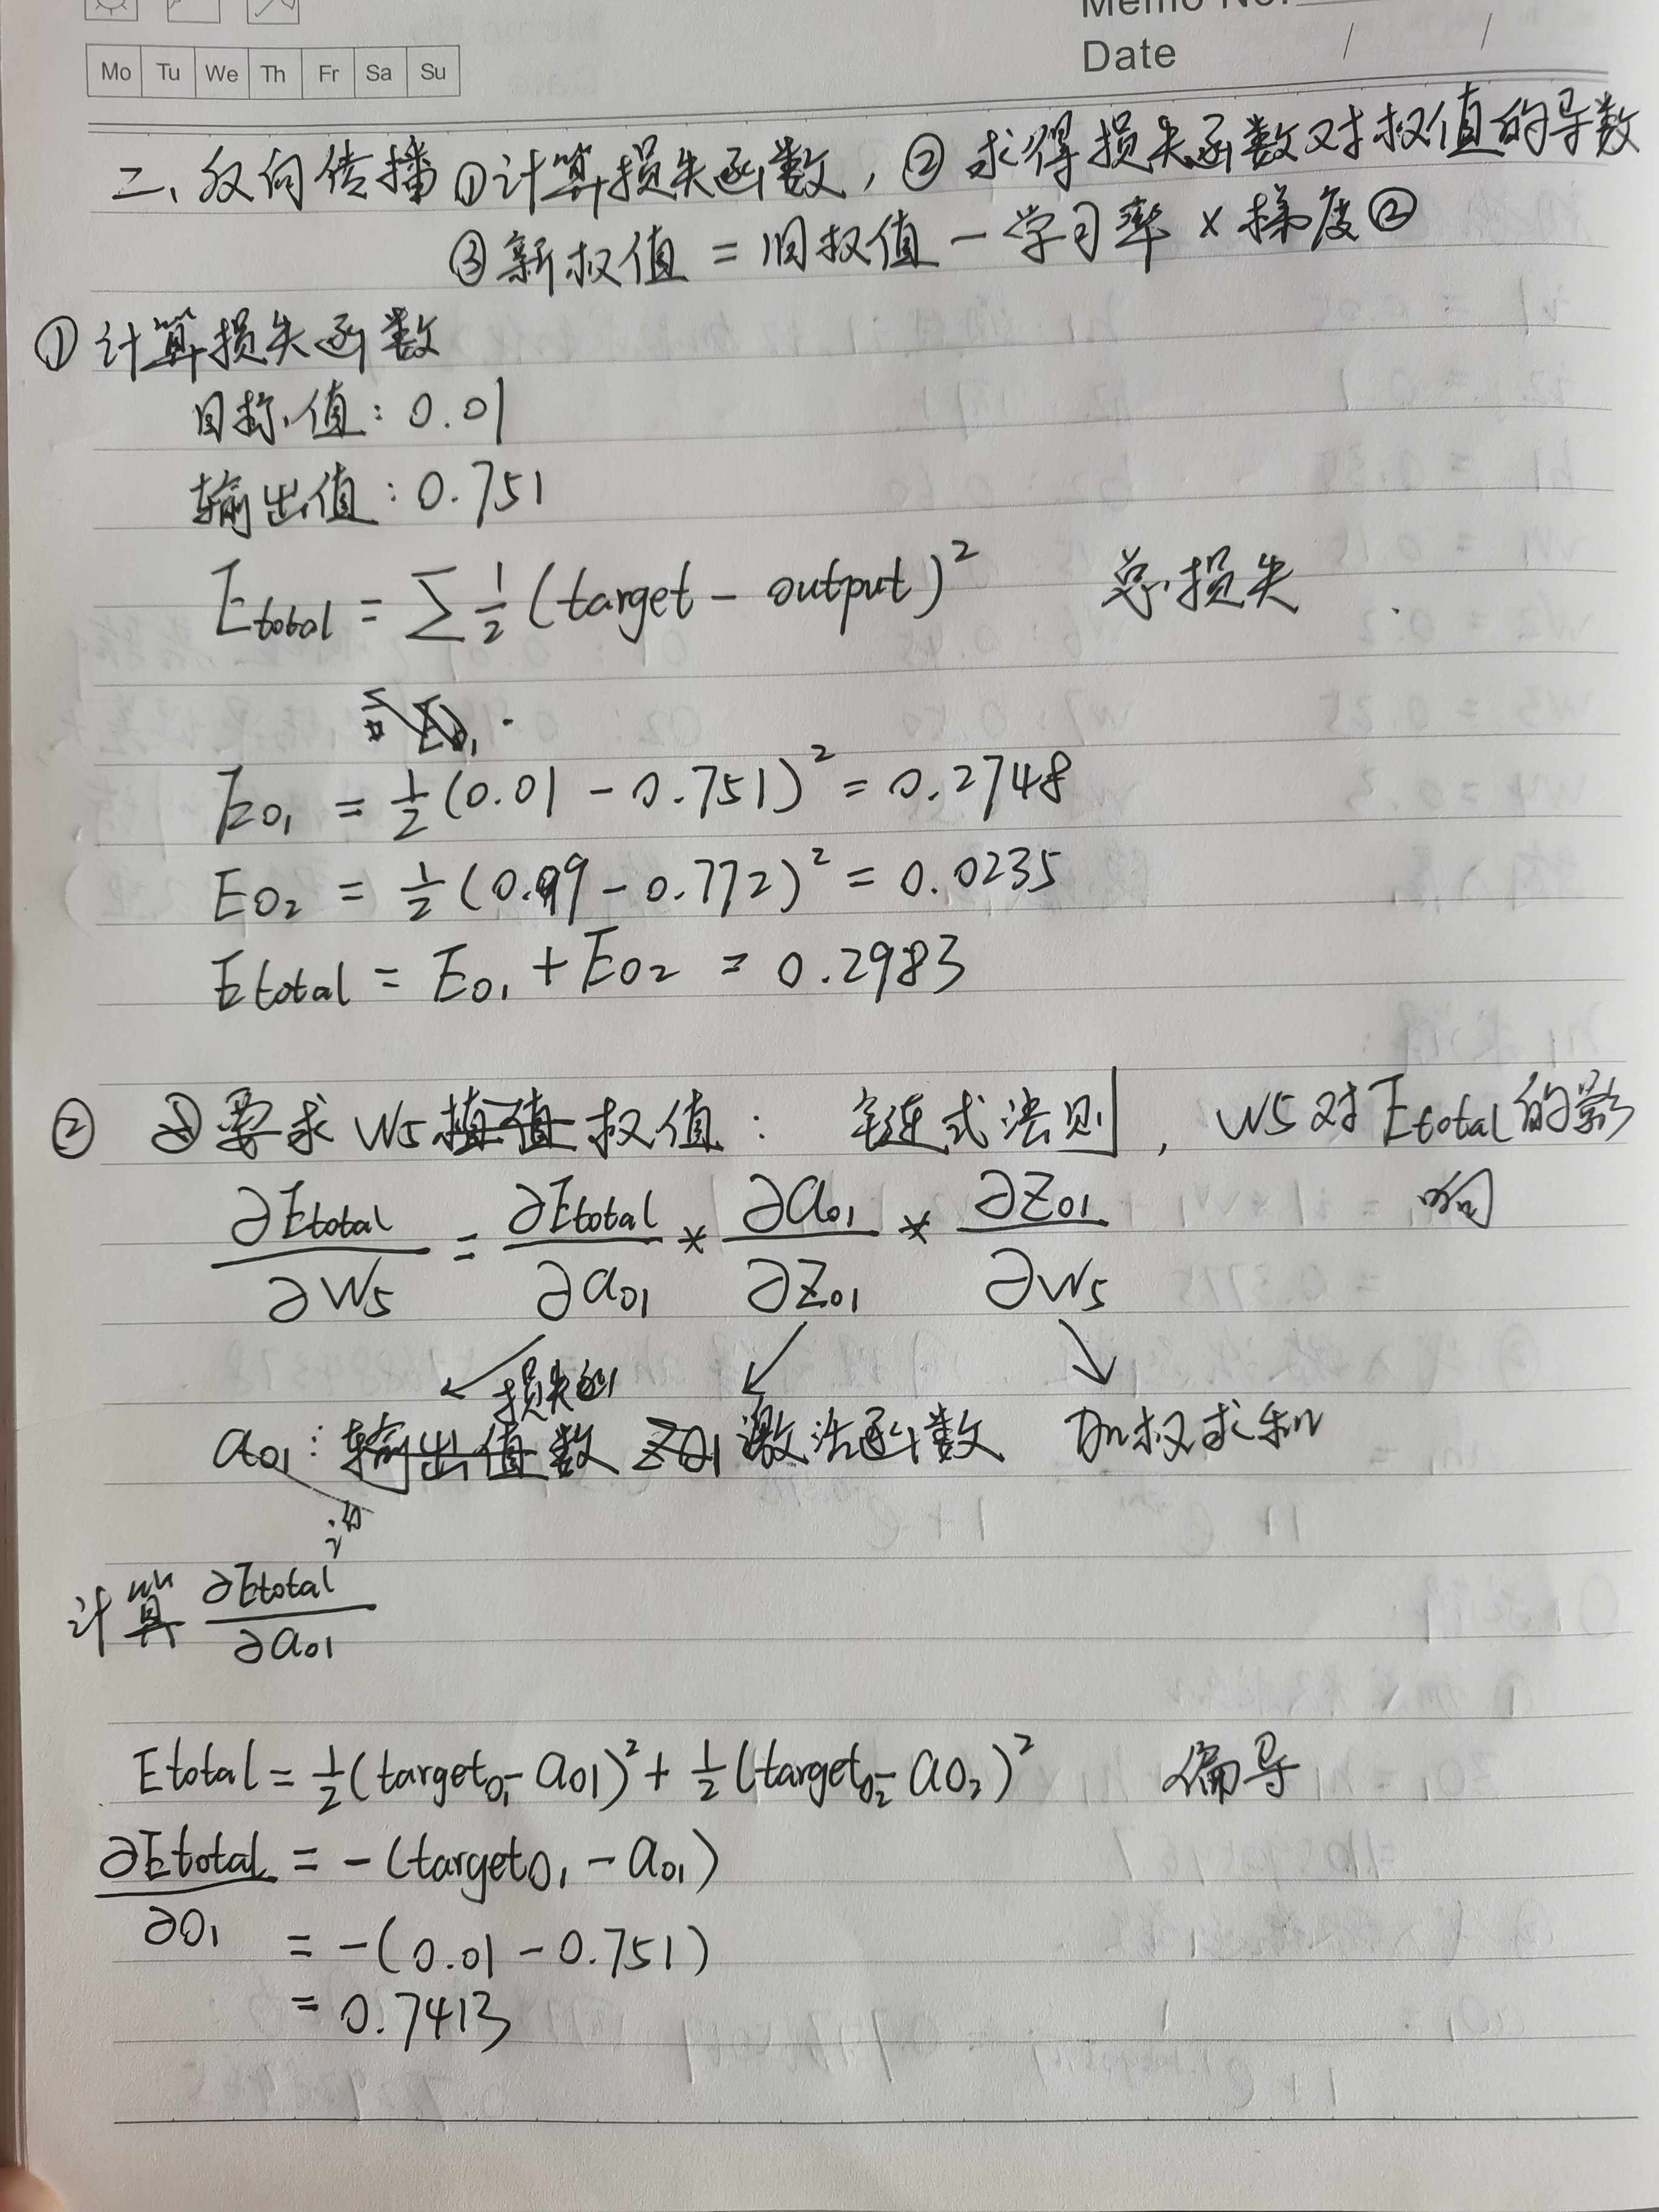 Memo No.
Mo Tu We Th Fr Sa Su
Date / /
二、反向传播 ①计算损失函数, ② 求得损失函数对权值的导数
③新权值 = 旧权值 - 学习率 × 梯度②
① 计算损失函数
目标值: 0.01
输出值: 0.751
Etotal = ∑ 1/2 (target - output)² 总损失
Eo₁ = 1/2 (0.01 - 0.751)² = 0.2748
Eo₂ = 1/2 (0.99 - 0.772)² = 0.0235
Etotal = Eo₁ + Eo₂ = 0.2983
② 要求 W5 权值: 链式法则, W5 对 Etotal 的影响
∂Etotal/∂W5 = ∂Etotal/∂a01 * ∂a01/∂Z01 * ∂Z01/∂W5
损失函数 激活函数 加权求和
a01: 输出值
计算 ∂Etotal/∂a01
Etotal = 1/2 (targeto₁ - a01)² + 1/2 (targeto₂ - ao₂)² 偏导
∂Etotal/∂O₁ = -(targeto₁ - a01)
= -(0.01 - 0.751)
= 0.7413